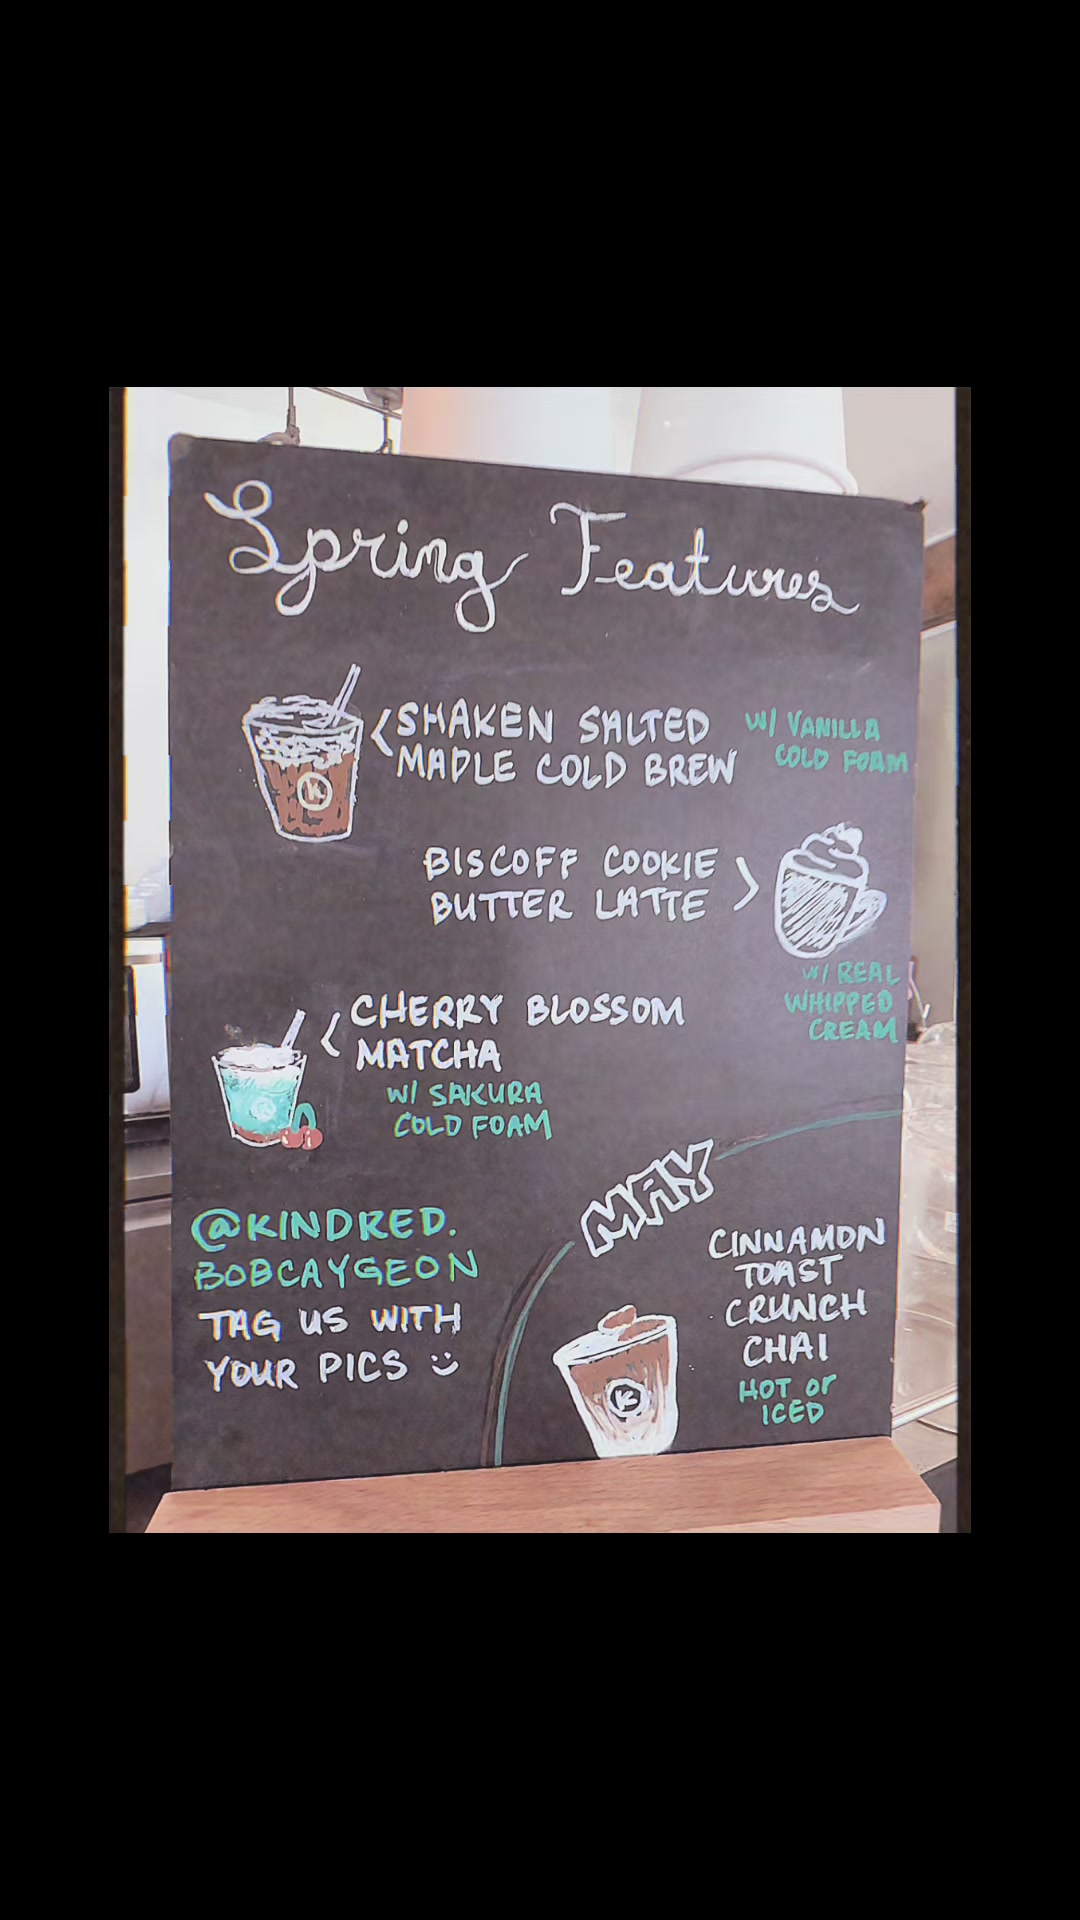 Spring Features
SHAKEN SALTED
MAPLE COLD BREW
W/ VANILLA
COLD FOAM
BISCOFF COOKIE
BUTTER LATTE
W/ REAL
WHIPPED
CREAM
CHERRY BLOSSOM
MATCHA
W/ SAKURA
COLD FOAM
@KINDRED.
BOBCAYGEON
TAG US WITH
YOUR PICS
MAY
CINNAMON
TOAST
CRUNCH
CHAI
HOT or
ICED
K
K
K